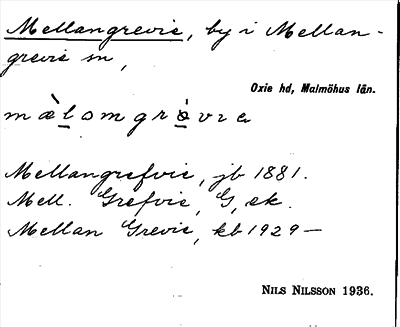 Mellangrevie, by i Mellan-
grevie sn,
Oxie hd, Malmöhus län.
mæ̀lomgrè̱vra
Mellangrefvie, jb 1881.
Mell. Grefvie, G, ek.
Mellan Grevie, kb 1929—
NILS NILSSON 1936.